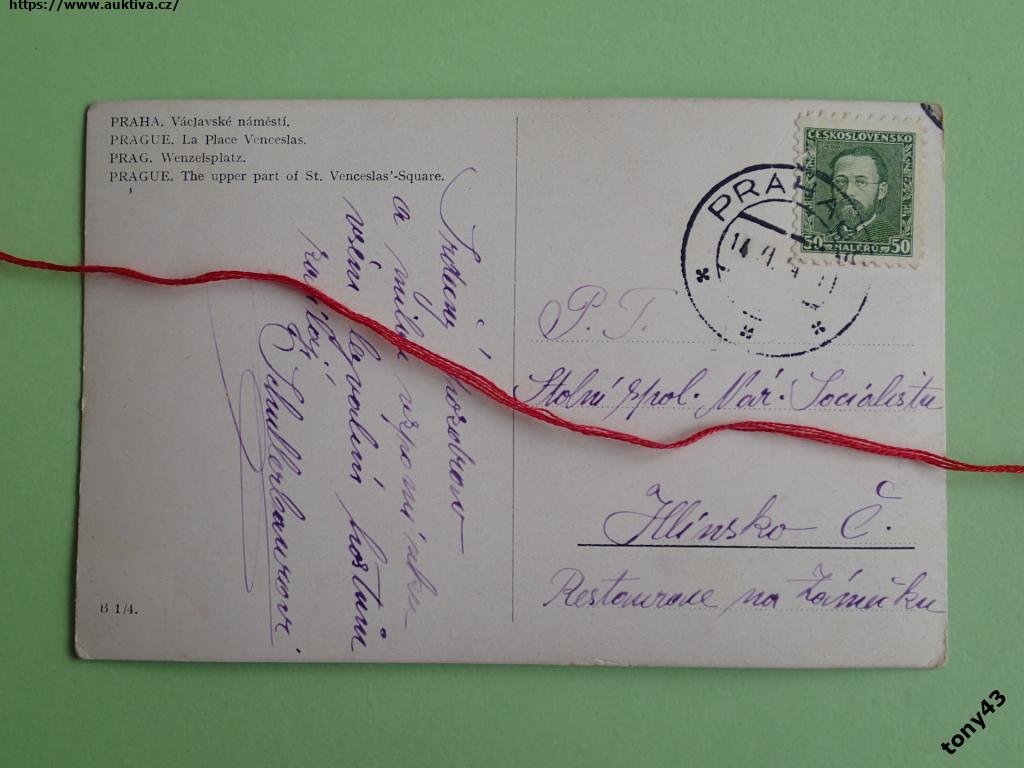 https://www.auktiva.cz/
PRAHA. Václavské náměstí.
PRAGUE. La Place Venceslas.
PRAG. Wenzelsplatz.
PRAGUE. The upper part of St. Venceslas'-Square.
Srdečný pozdrav
a milou vzpomínku
všem hostům
B 1/4.
ČESKOSLOVENSKO
50 HALÉŘŮ 50
PRAHA
14
P. T.
Stolní spol. Nár. Socialistu
Hlinsko Č.
Restaurace na Zámečku
tony43